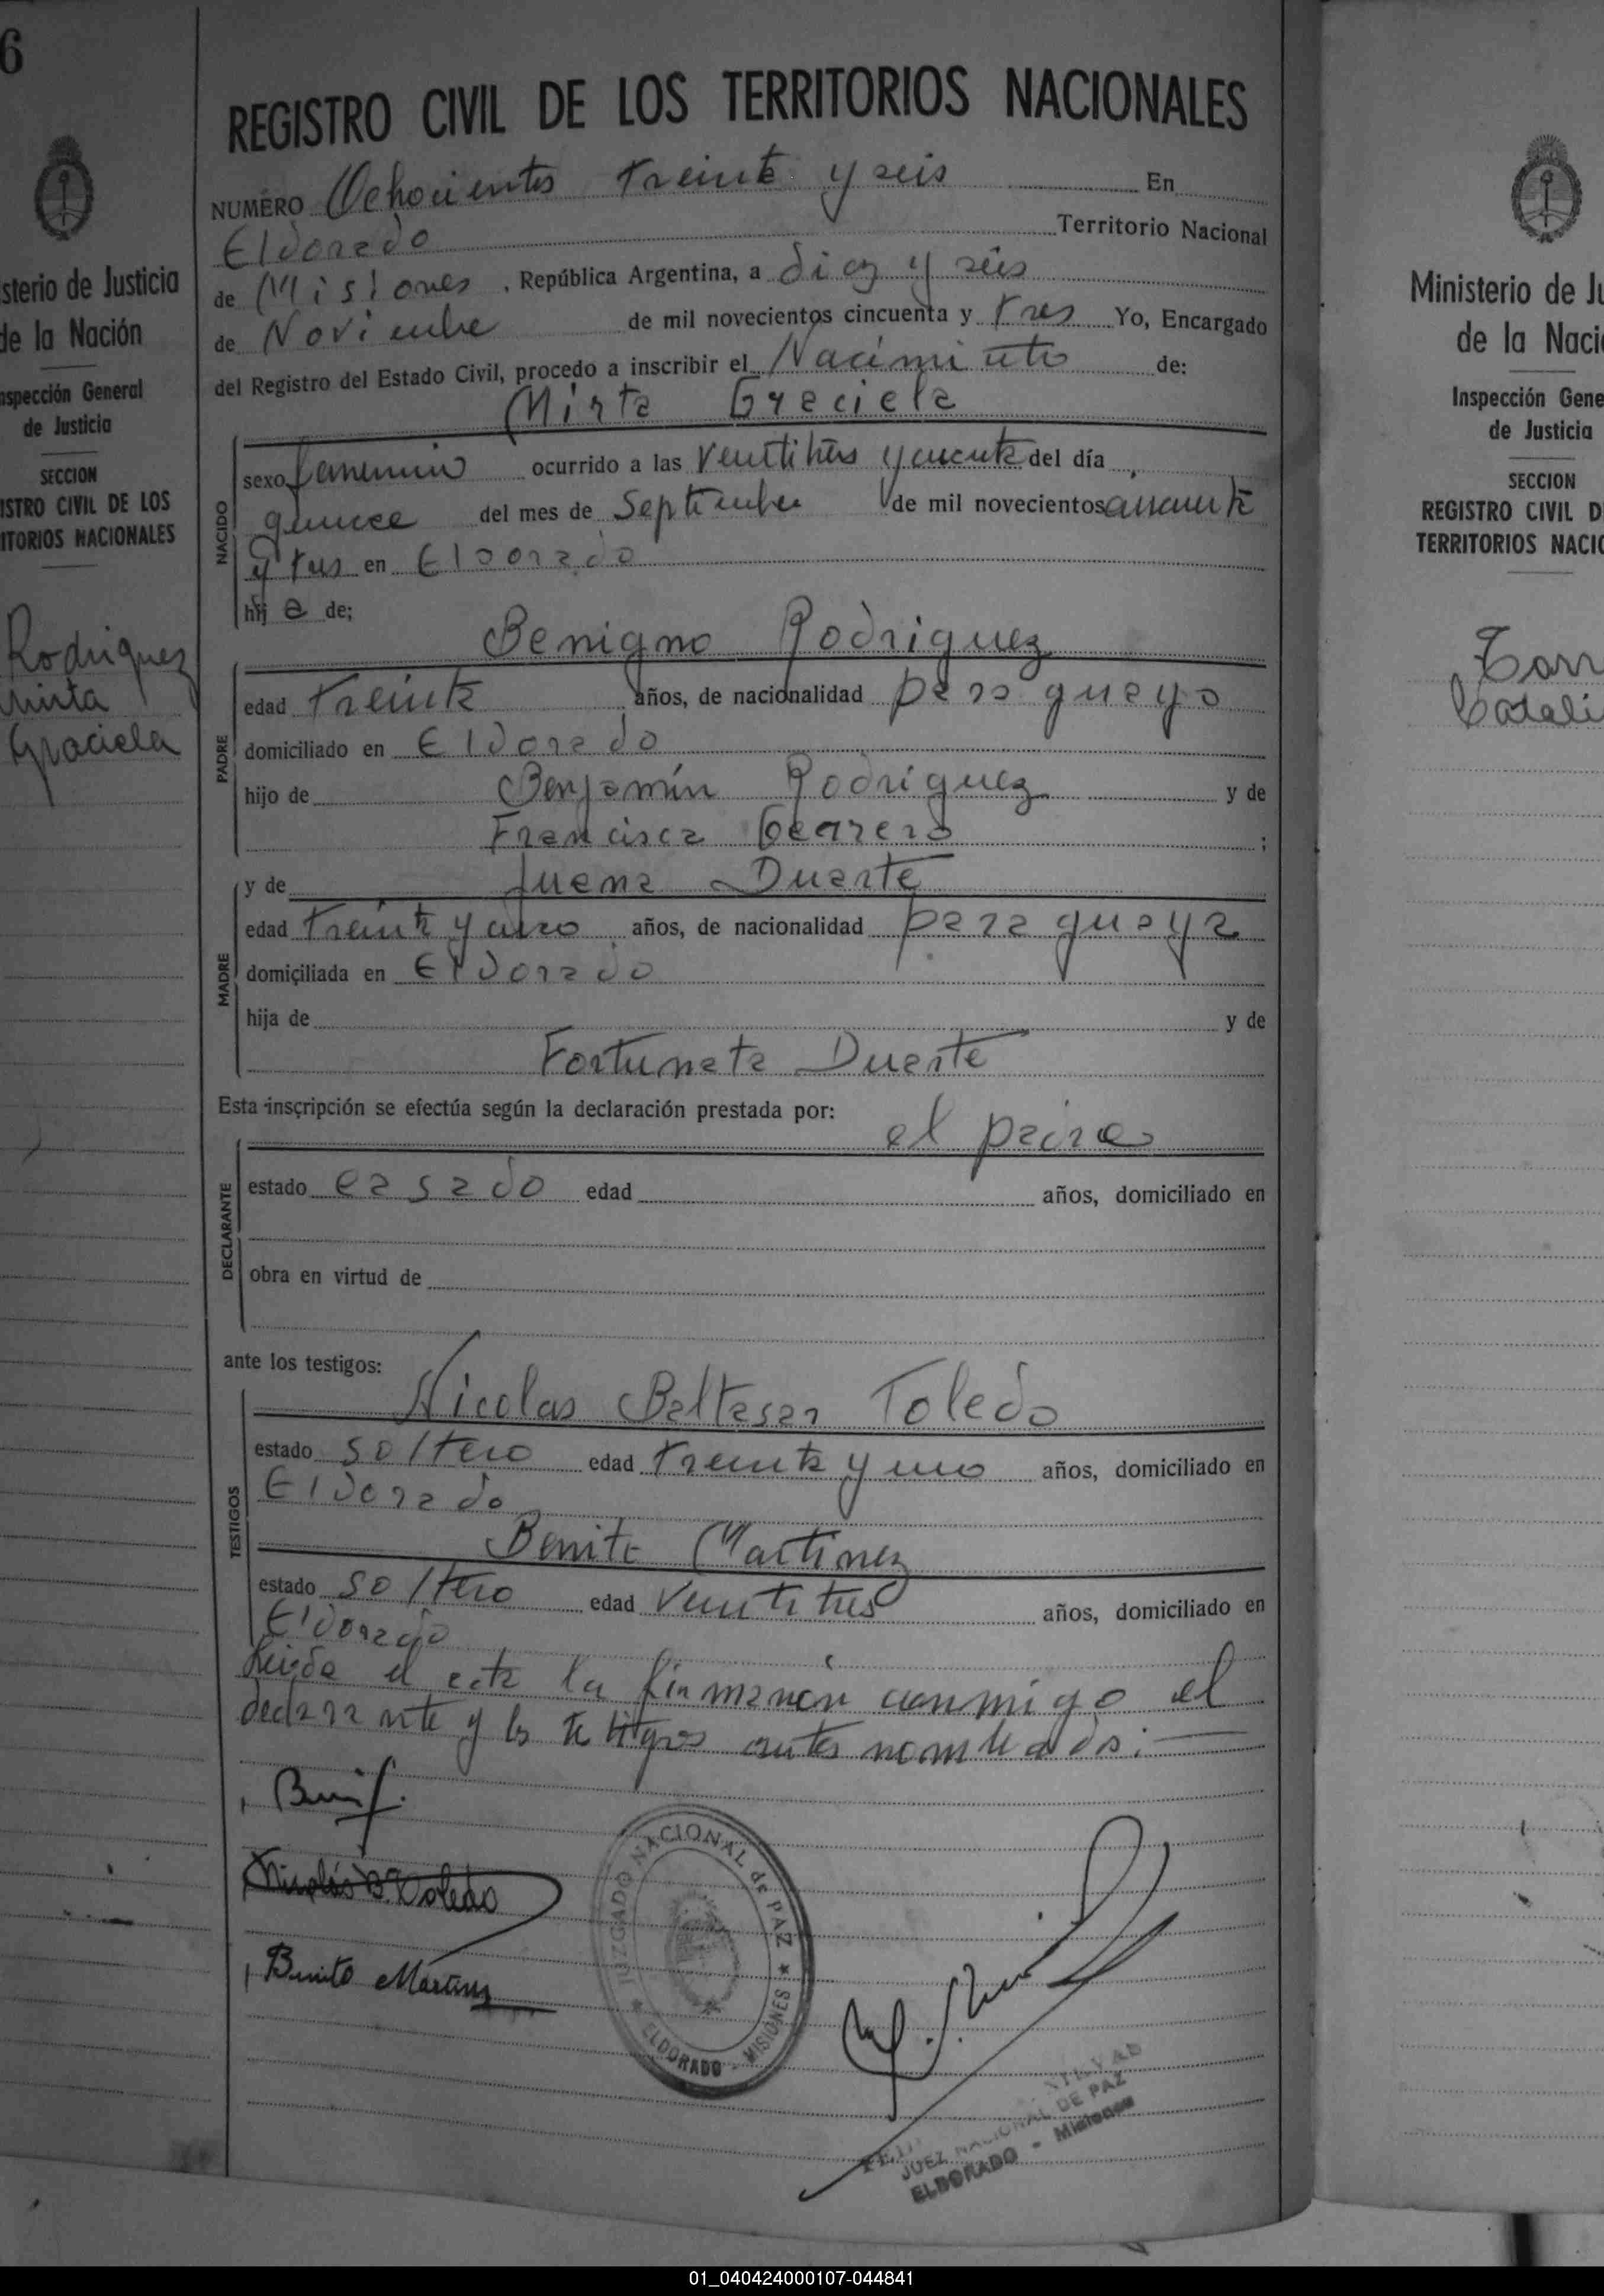 6
REGISTRO CIVIL DE LOS TERRITORIOS NACIONALES
NUMERO Ochocientos treinta y seis En
Eldorado Territorio Nacional
de Misiones, República Argentina, a diez y seis
de Noviembre de mil novecientos cincuenta y tres Yo, Encargado
del Registro del Estado Civil, procedo a inscribir el Nacimiento de:
Mirta Graciela
NACIDO
sexo femenino ocurrido a las veintitres y cuarenta del día
quince del mes de Septiembre de mil novecientos cincuenta
y tres en Eldorado
hij a de;
Benigno Rodriguez
PADRE
edad treinta años, de nacionalidad paraguayo
domiciliado en Eldorado
hijo de Benjamín Rodriguez y de
Francisca ;
y de Juana Duarte
MADRE
edad treinta y años, de nacionalidad paraguaya
domiciliada en Eldorado
hija de y de
Fortunata Duarte
Esta inscripción se efectúa según la declaración prestada por:
el padre
DECLARANTE
estado casado edad años, domiciliado en
obra en virtud de
ante los testigos:
Nicolas Baltasar Toledo
TESTIGOS
estado soltero edad treinta y uno años, domiciliado en
Eldorado
Benito Martinez
estado soltero edad veintitres años, domiciliado en
Eldorado
Leida el acta la firmaron conmigo el
declarante y los testigos antes nombrados.
Nicolás B. Toledo
Benito Martinez
JUZGADO NACIONAL de PAZ
ELDORADO - MISIONES
JUEZ NACIONAL DE PAZ
ELDORADO - Misiones
sterio de Justicia
de la Nación
nspección General
de Justicia
SECCION
ISTRO CIVIL DE LOS
ITORIOS NACIONALES
Rodriguez
Mirta
Graciela
Ministerio de Ju
de la Naci
Inspección Gene
de Justicia
SECCION
REGISTRO CIVIL D
TERRITORIOS NACIO
Catali
01_040424000107-044841